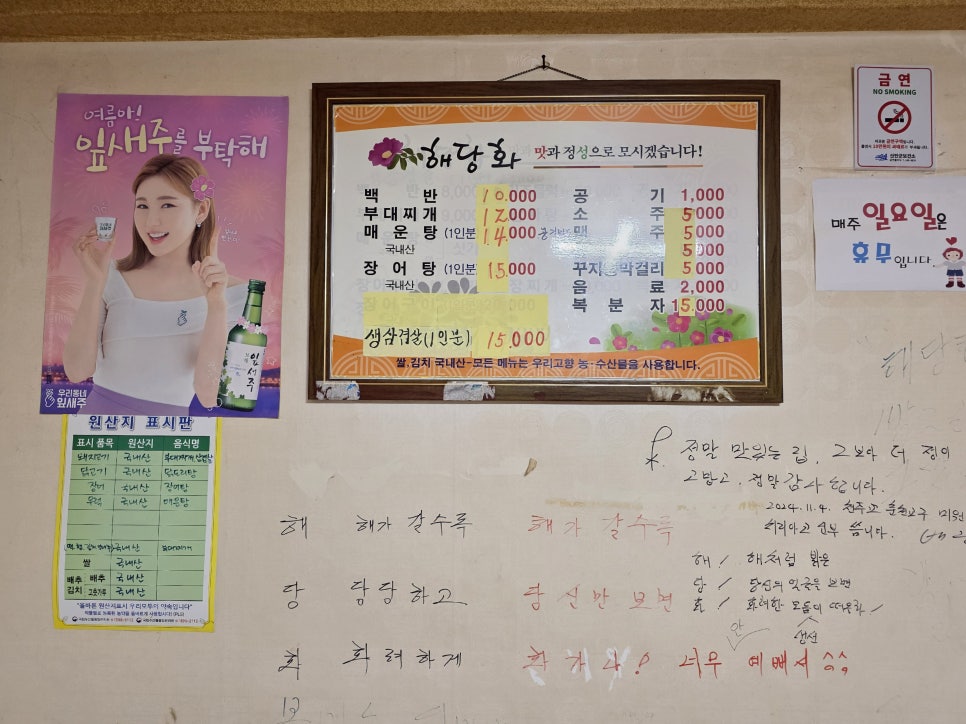 여름아!
잎새주를 부탁해
잎새주
우리동네
잎새주
원산지 표시판
표시 품목 원산지 음식명
돼지고기 국내산
닭고기 국내산 닭도리탕
장어 국내산 장어탕
우럭 국내산 매운탕
국내산
쌀 국내산
배추김치 배추 국내산
고춧가루 국내산
"올바른 원산지표시 우리모두의 약속입니다"
해당화 맛과 정성으로 모시겠습니다!
백 반 10.000
부대찌개 12.000
매운탕 (1인분 14.000
국내산
장어탕 (1인분 15.000
국내산
생삼겹살(1인분) 15.000
공 기 1,000
소 주 5 000
맥 주 5 000
5 000
꾸지뽕막걸리 5 000
음 료 2,000
복 분 자 15.000
쌀,김치 국내산-모든 메뉴는 우리고향 농·수산물을 사용합니다.
금 연
NO SMOKING
신안군보건소
매주 일요일은
휴무입니다
정말 맛있는 집. 그보다 더 정이
고맙고. 정말 감사합니다.
2024.11.4. 천주교
해 해가 갈수록
당 당당하고
화 화려하게
해가 갈수록
당신만 보면
화가나! 너무 예뻐서 ^^
해 / 해처럼 밝은
당 / 당신의 얼굴을 보면
화 / 화려한 오늘이 떠올라 /
생선
해당화